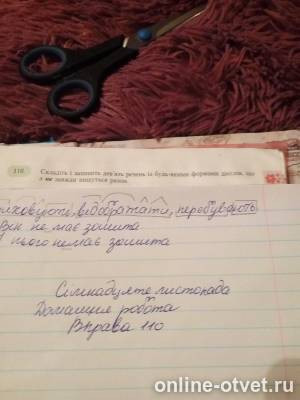 110
Складіть і запишіть дев'ять речень із будь-якими формами дієслів, що
з не завжди пишуться разом.
відображати, перебувають
Він не має зошита
нього немає зошита
Сімнадцяте листопада
Домашня робота
Вправа 110
online-otvet.ru